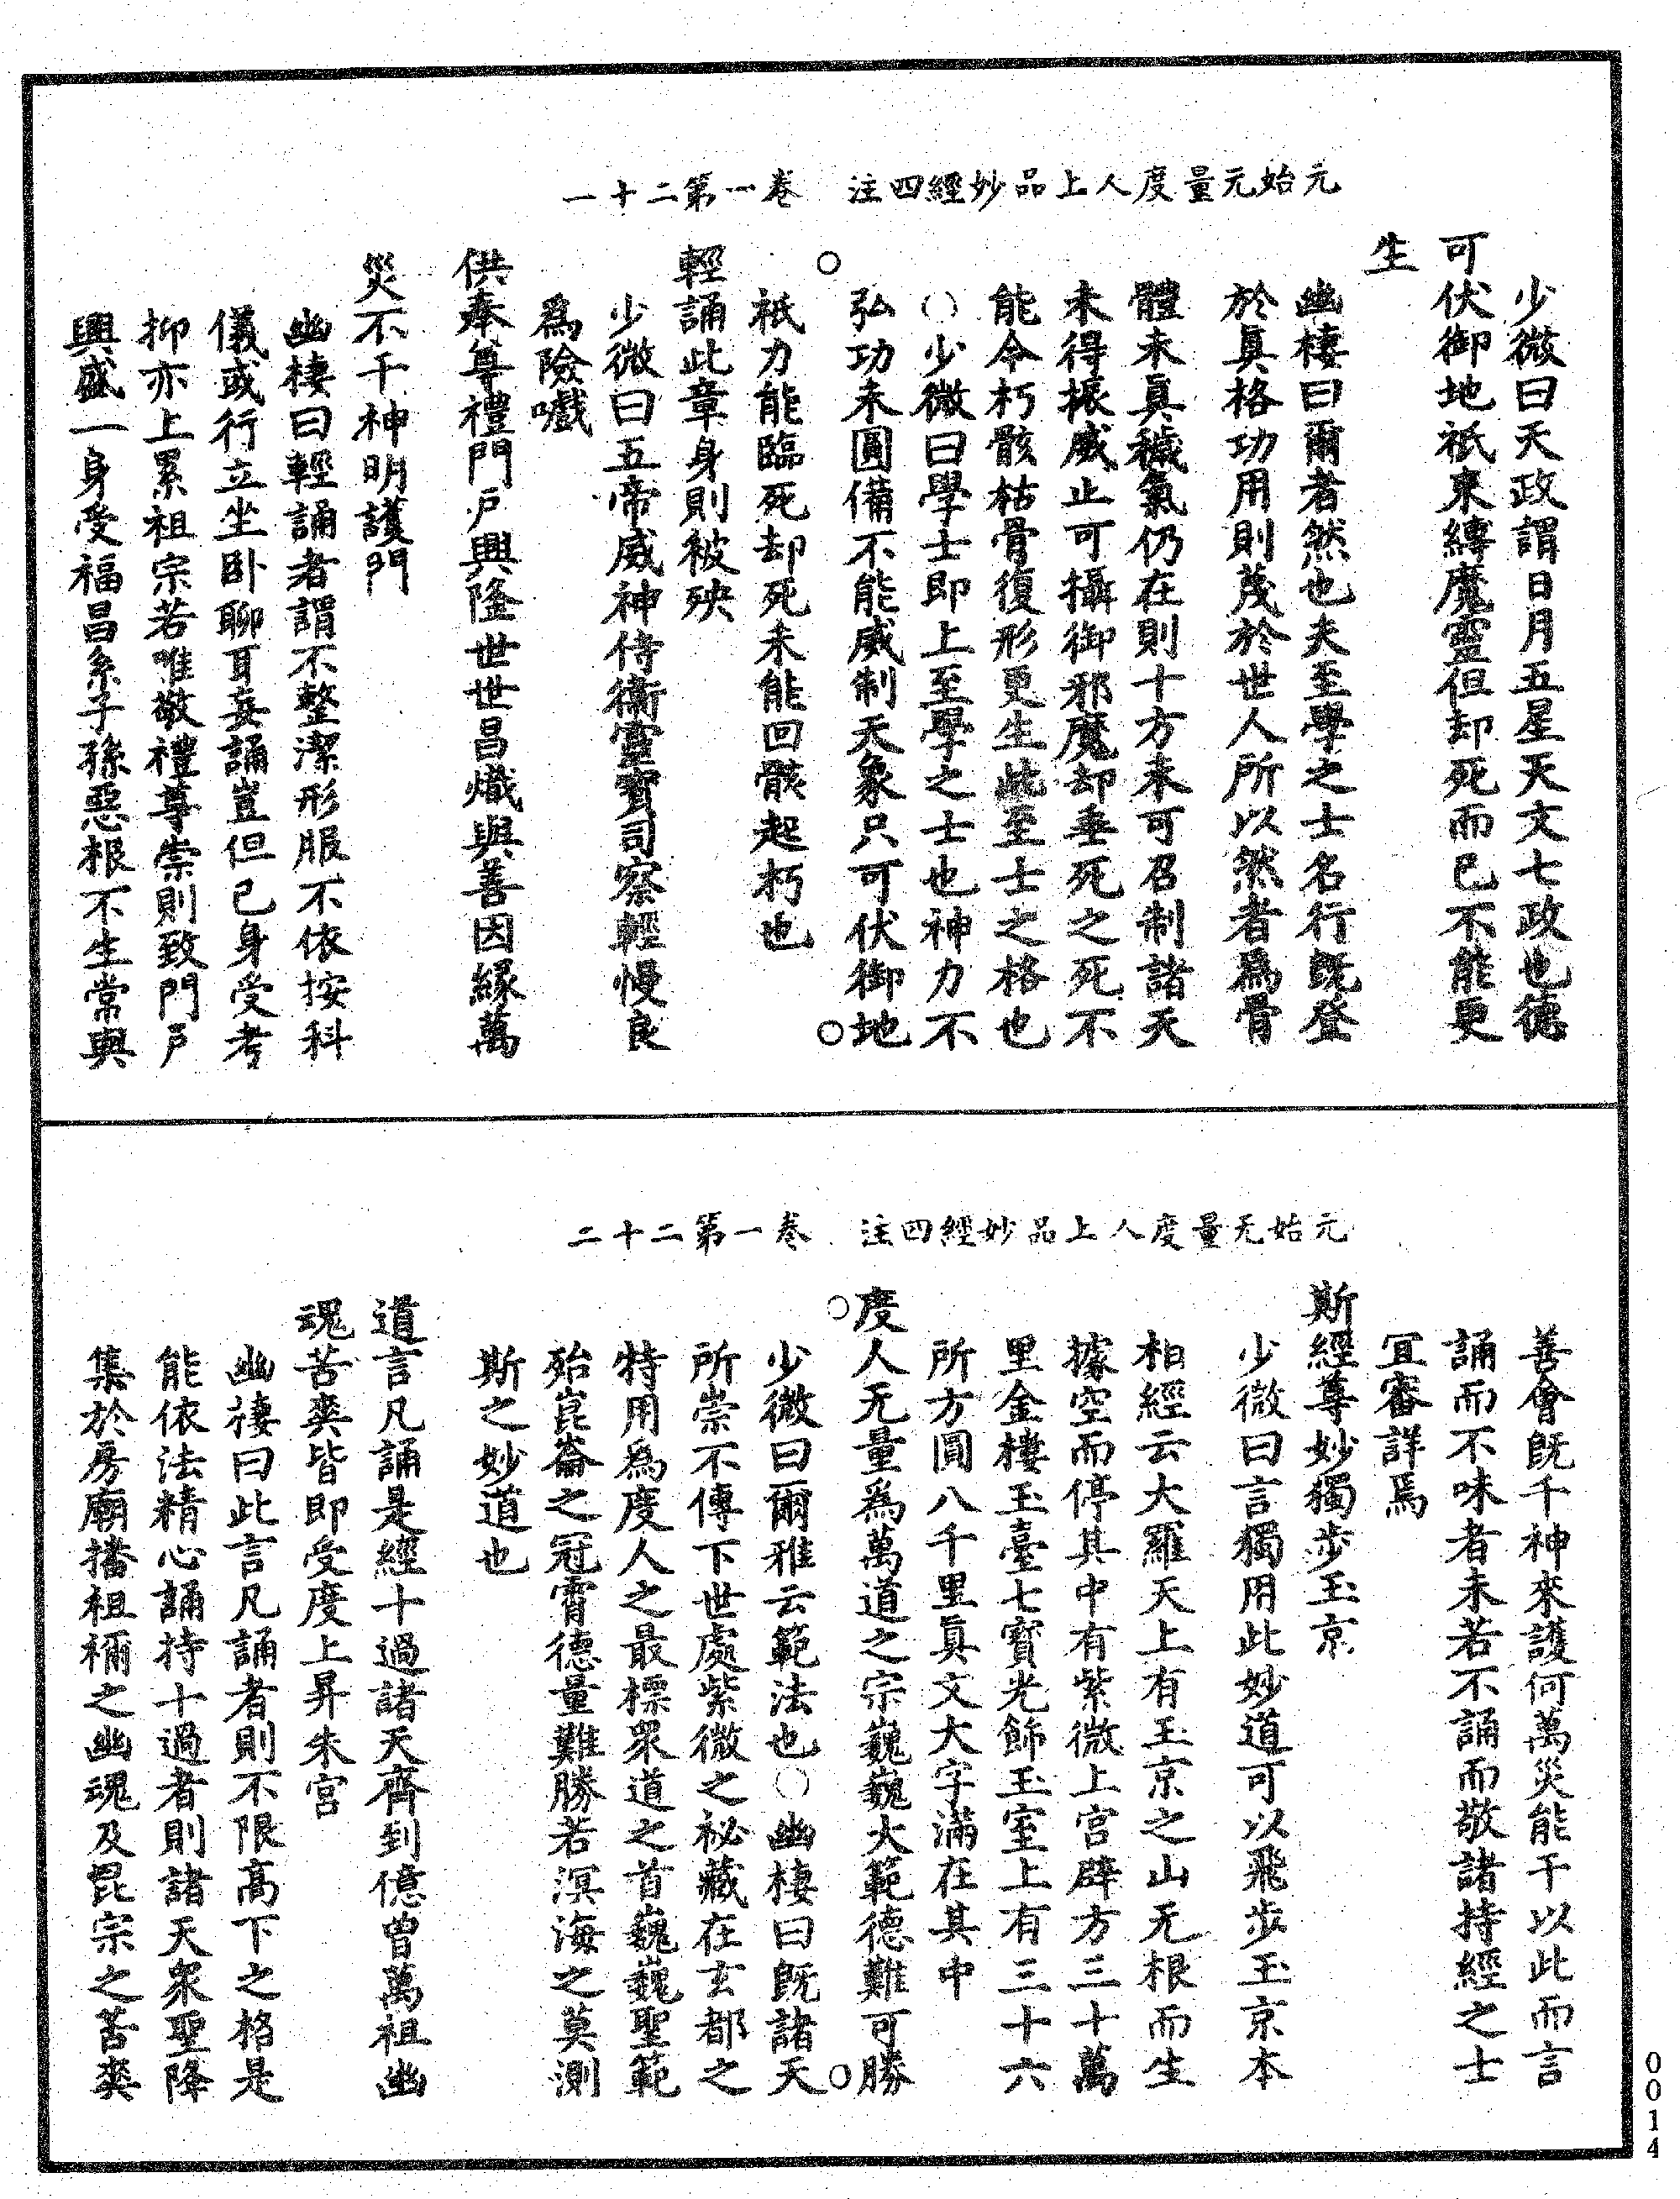 元始无量度人上品妙經四注　卷一第二十一
少微曰天政謂日月五星天文七政也德
可伏御地祇束縛魔靈但却死而已不能更
生
幽棲曰爾者然也夫至學之士名行既登
於真格功用則茂於世人所以然者為骨
體未真穢氣仍在則十方未可召制諸天
未得振威止可攝御邪魔却垂死之死不
能令朽骸枯骨復形更生此至士之格也
○少微曰學士即上至學之士也神力不
弘功未圓備不能威制天象只可伏御地
○　○
祇力能臨死却死未能回骸起朽也
輕誦此章身則被殃
少微曰五帝威神侍衛靈寶司察輕慢良
為險巇
供奉尊禮門戶興隆世世昌熾與善因緣萬
災不干神明護門
幽棲曰輕誦者謂不整潔形服不依按科
儀或行立坐卧聊耳妄誦豈但已身受考
抑亦上累祖宗若唯敬禮尊崇則致門戶
興盛一身受福昌系子孫惡根不生常與
元始无量度人上品妙經四注　卷一第二十二
善會既千神來護何萬災能干以此而言
誦而不味者未若不誦而敬諸持經之士
宜審詳焉
斯經尊妙獨步玉京
少微曰言獨用此妙道可以飛步玉京本
相經云大羅天上有玉京之山无根而生
據空而停其中有紫微上宮辟方三十萬
里金樓玉臺七寶光飾玉室上有三十六
所方圓八千里真文大字滿在其中
度人无量為萬道之宗巍巍大範德難可勝
○　○
少微曰爾雅云範法也○幽棲曰既諸天
所崇不傳下世處紫微之祕藏在玄都之
特用為度人之最標衆道之首巍巍聖範
殆崑崙之冠霄德量難勝若溟海之莫測
斯之妙道也
道言凡誦是經十過諸天齊到億曾萬祖幽
魂苦爽皆即受度上昇朱宮
幽棲曰此言凡誦者則不限高下之格是
能依法精心誦持十過者則諸天衆聖降
集於房廟播祖禰之幽魂及昆宗之苦爽
0014